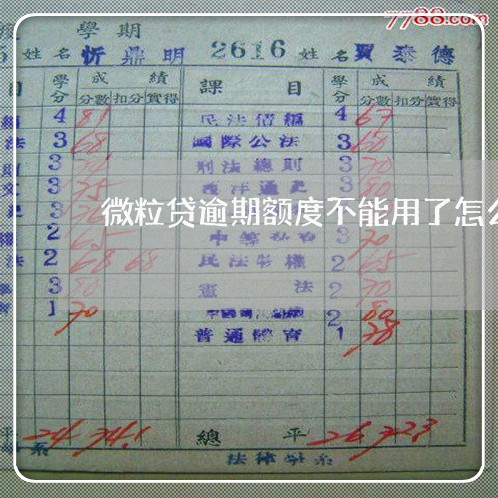 7788.com
學期
姓名 忻鼎明 2616 姓名 賈泰德
目 學分 成績 課目 學分 成績
分數 扣分 實得 分數 扣分 實得
4 81 民法債編 4 67
法 3 68 國際公法 3 60
3 刑法總則 3 70
3 75 西洋通史 3 80
微粒贷逾期额度不能用了怎么
2 65 中等 3 70
法 2 68 68 民法物權 2 65
3 80 憲法 2 70
1 70 2 80
普通體育 1 78
平 24 74.1 總平 26 72.3
系 法律學系